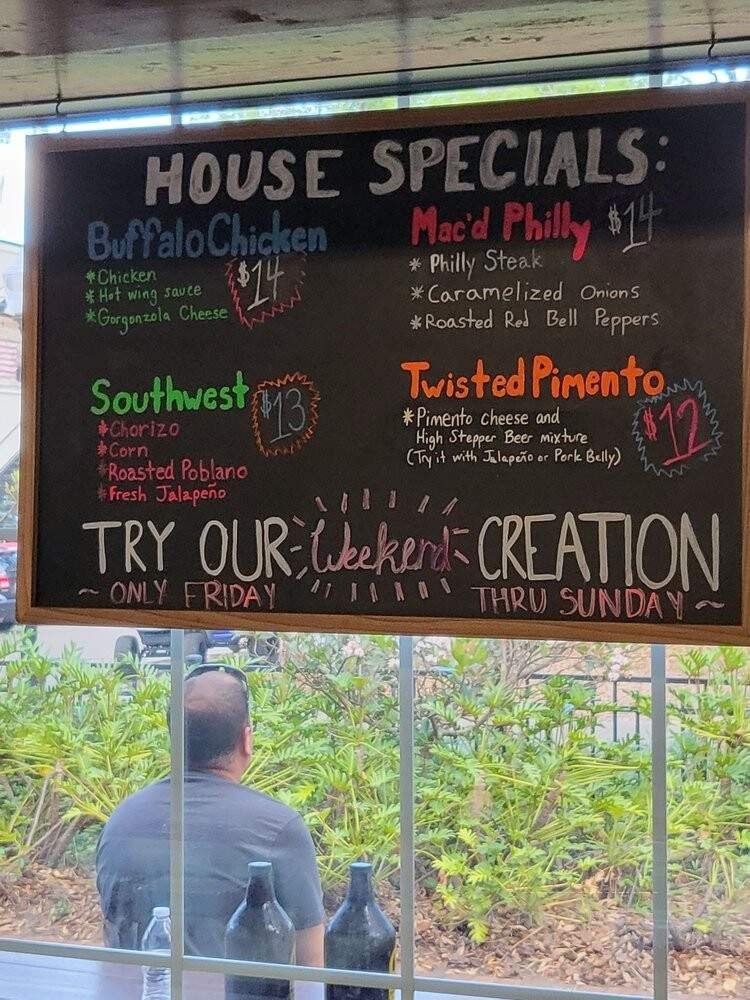 HOUSE SPECIALS:
Buffalo Chicken
$14
*Chicken
*Hot wing sauce
*Gorgonzola Cheese
Mac'd Philly $14
* Philly Steak
*Caramelized Onions
*Roasted Red Bell Peppers
Southwest $13
*Chorizo
*Corn
*Roasted Poblano
*Fresh Jalapeño
Twisted Pimento
$12
*Pimento cheese and
High Stepper Beer mixture
(Try it with Jalapeño or Pork Belly)
TRY OUR Weekend CREATION
~ ONLY FRIDAY THRU SUNDAY ~